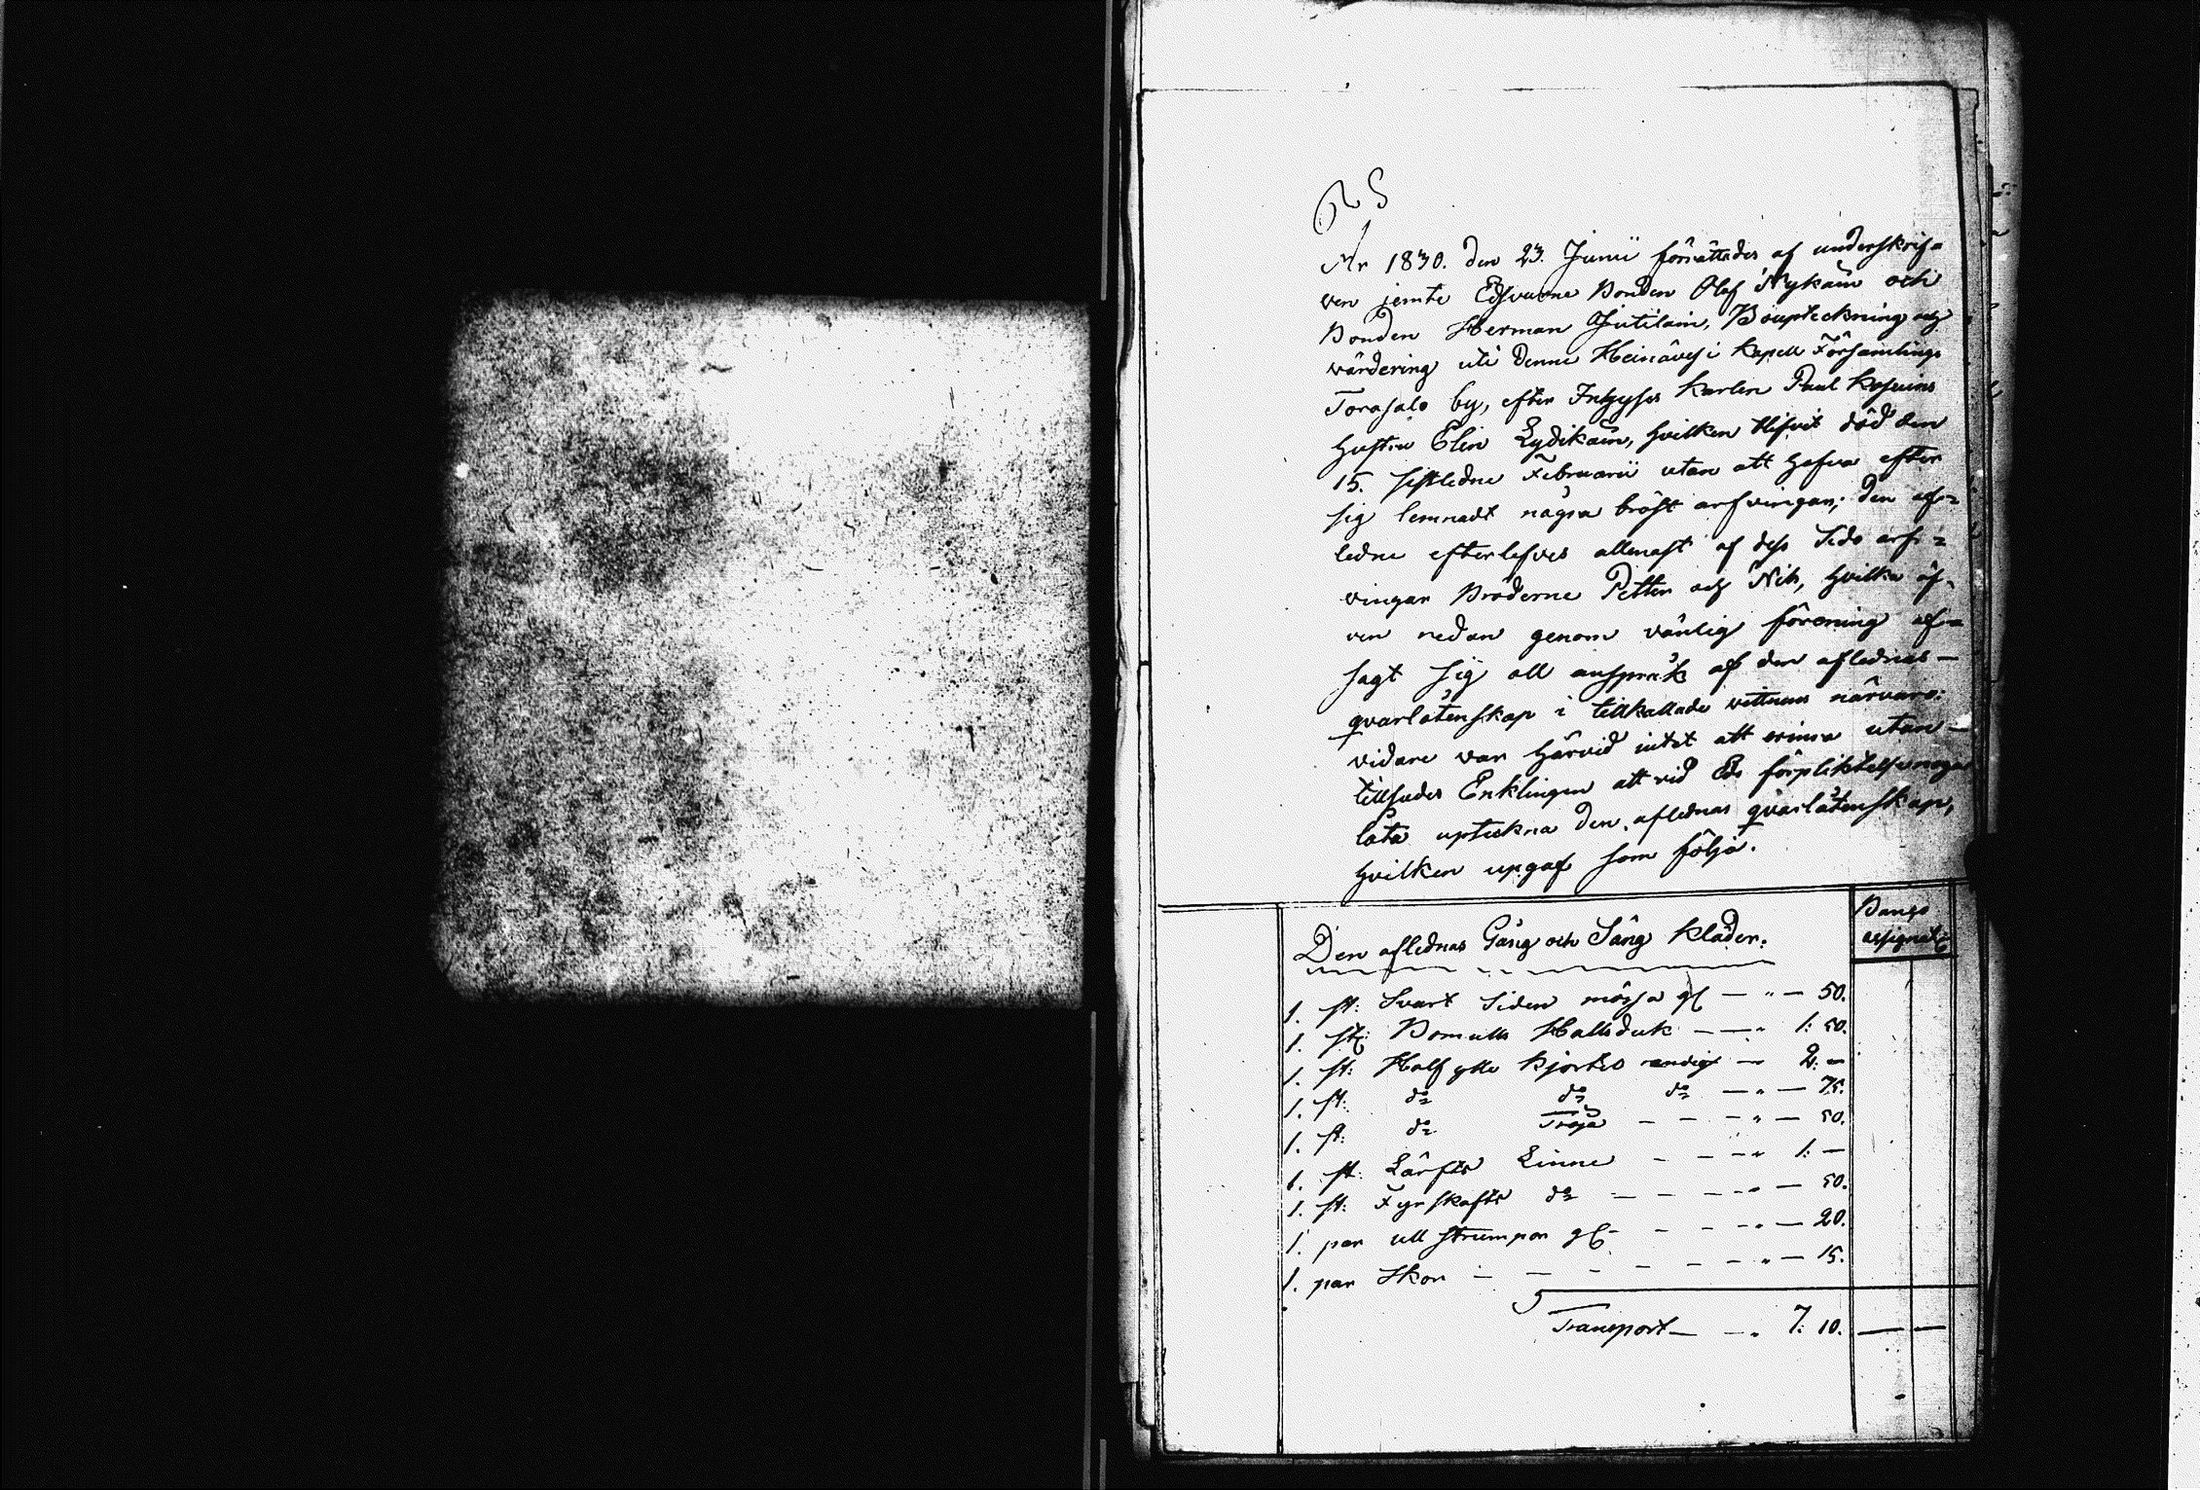 År 1830. den 23. Junii förrättades af underskrif=
ven jemte Edsvurne Bonden Olof Nykäin och
Bonden Herman Jutilain, Boupteckning och
värdering uti denne Heinävesi Kapell Församlings
Torasalo by, efter Inhyses Karlen Paul Kosuins
hustru Elin Lydikäin, hvilken blifvit död den
15. sistledne Februarii utan att hafva efter
sig lemnadt några bröst arfvingar; den af=
ledne efterlefves allenast af dess Sido arf=
vingar Bröderne Petter och Nils, hvilka äf=
ven nedan genom vänlig förening af=
sagt sig all anspråk af den aflednas
qvarlåtenskap i tillkallade vittnens närvaro:
vidare var härvid intet att erinra utan
tillsades Enklingen att vid Eds förpliktelse noga
låta upteckna den aflednas qvarlåtenskap,
hvilken upgaf som följa.
Banco
assignat:
Den aflednas Gång och Säng kläder.
1. st: Svart Siden mössa gl — " — 50.
1. st: Bomulls Halsduk — — " 1: 50.
1. st: Half ylle Kjortel randig — " 2: —
1. st: do do do — " — 75.
1. st: do Tröja — — — " — 50.
1. st: Lärfts Linne — — — " 1: —
1. st: Fyrskafts do — — — " — 50.
1. par ull strumpor gl — — — " — 20.
1. par Skor — — — — — — " — 15.
Transport — — " 7: 10. — —